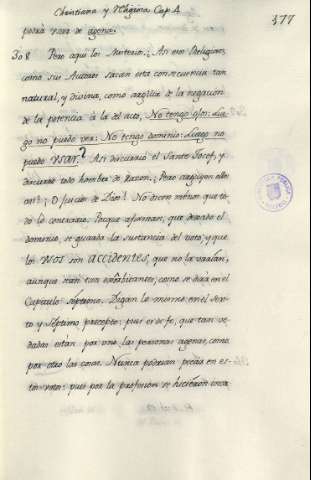 Christiana y Religiosa Cap. 4.
177
podrá usar de agena.
308 Pero aqui los Misterios: Asi esos Religiosos,
como sus Autores sacan esta consecuencia tan
natural, y divina, como argüir de la negacion
de la potencia à la del acto, No tengo ojos: Lue
go no puedo ver: No tengo dominio: Luego no
puedo usar? Asi discurrió el Santo Josef, y
discurre todo hombre de razon. ¿Pero arguyen ellos
asi? O juicios de Dios! No dicen menos que to
do lo contrario. Porque afirman, que dejando el
dominio, se guarda la sustancia del voto; y que
los usos son accidentes, que no la vician,
aunque sean tan exhorbitantes; como se dirá en el
Capitulo septimo. Digan lo mismo en el sex
to y septimo precepto: pues es de fe, que tan ve
dadas estan por uno las personas agenas, como
por otro las cosas. Nunca podrian pecar en es
tos votos: pues por la profesion se hicieron inca